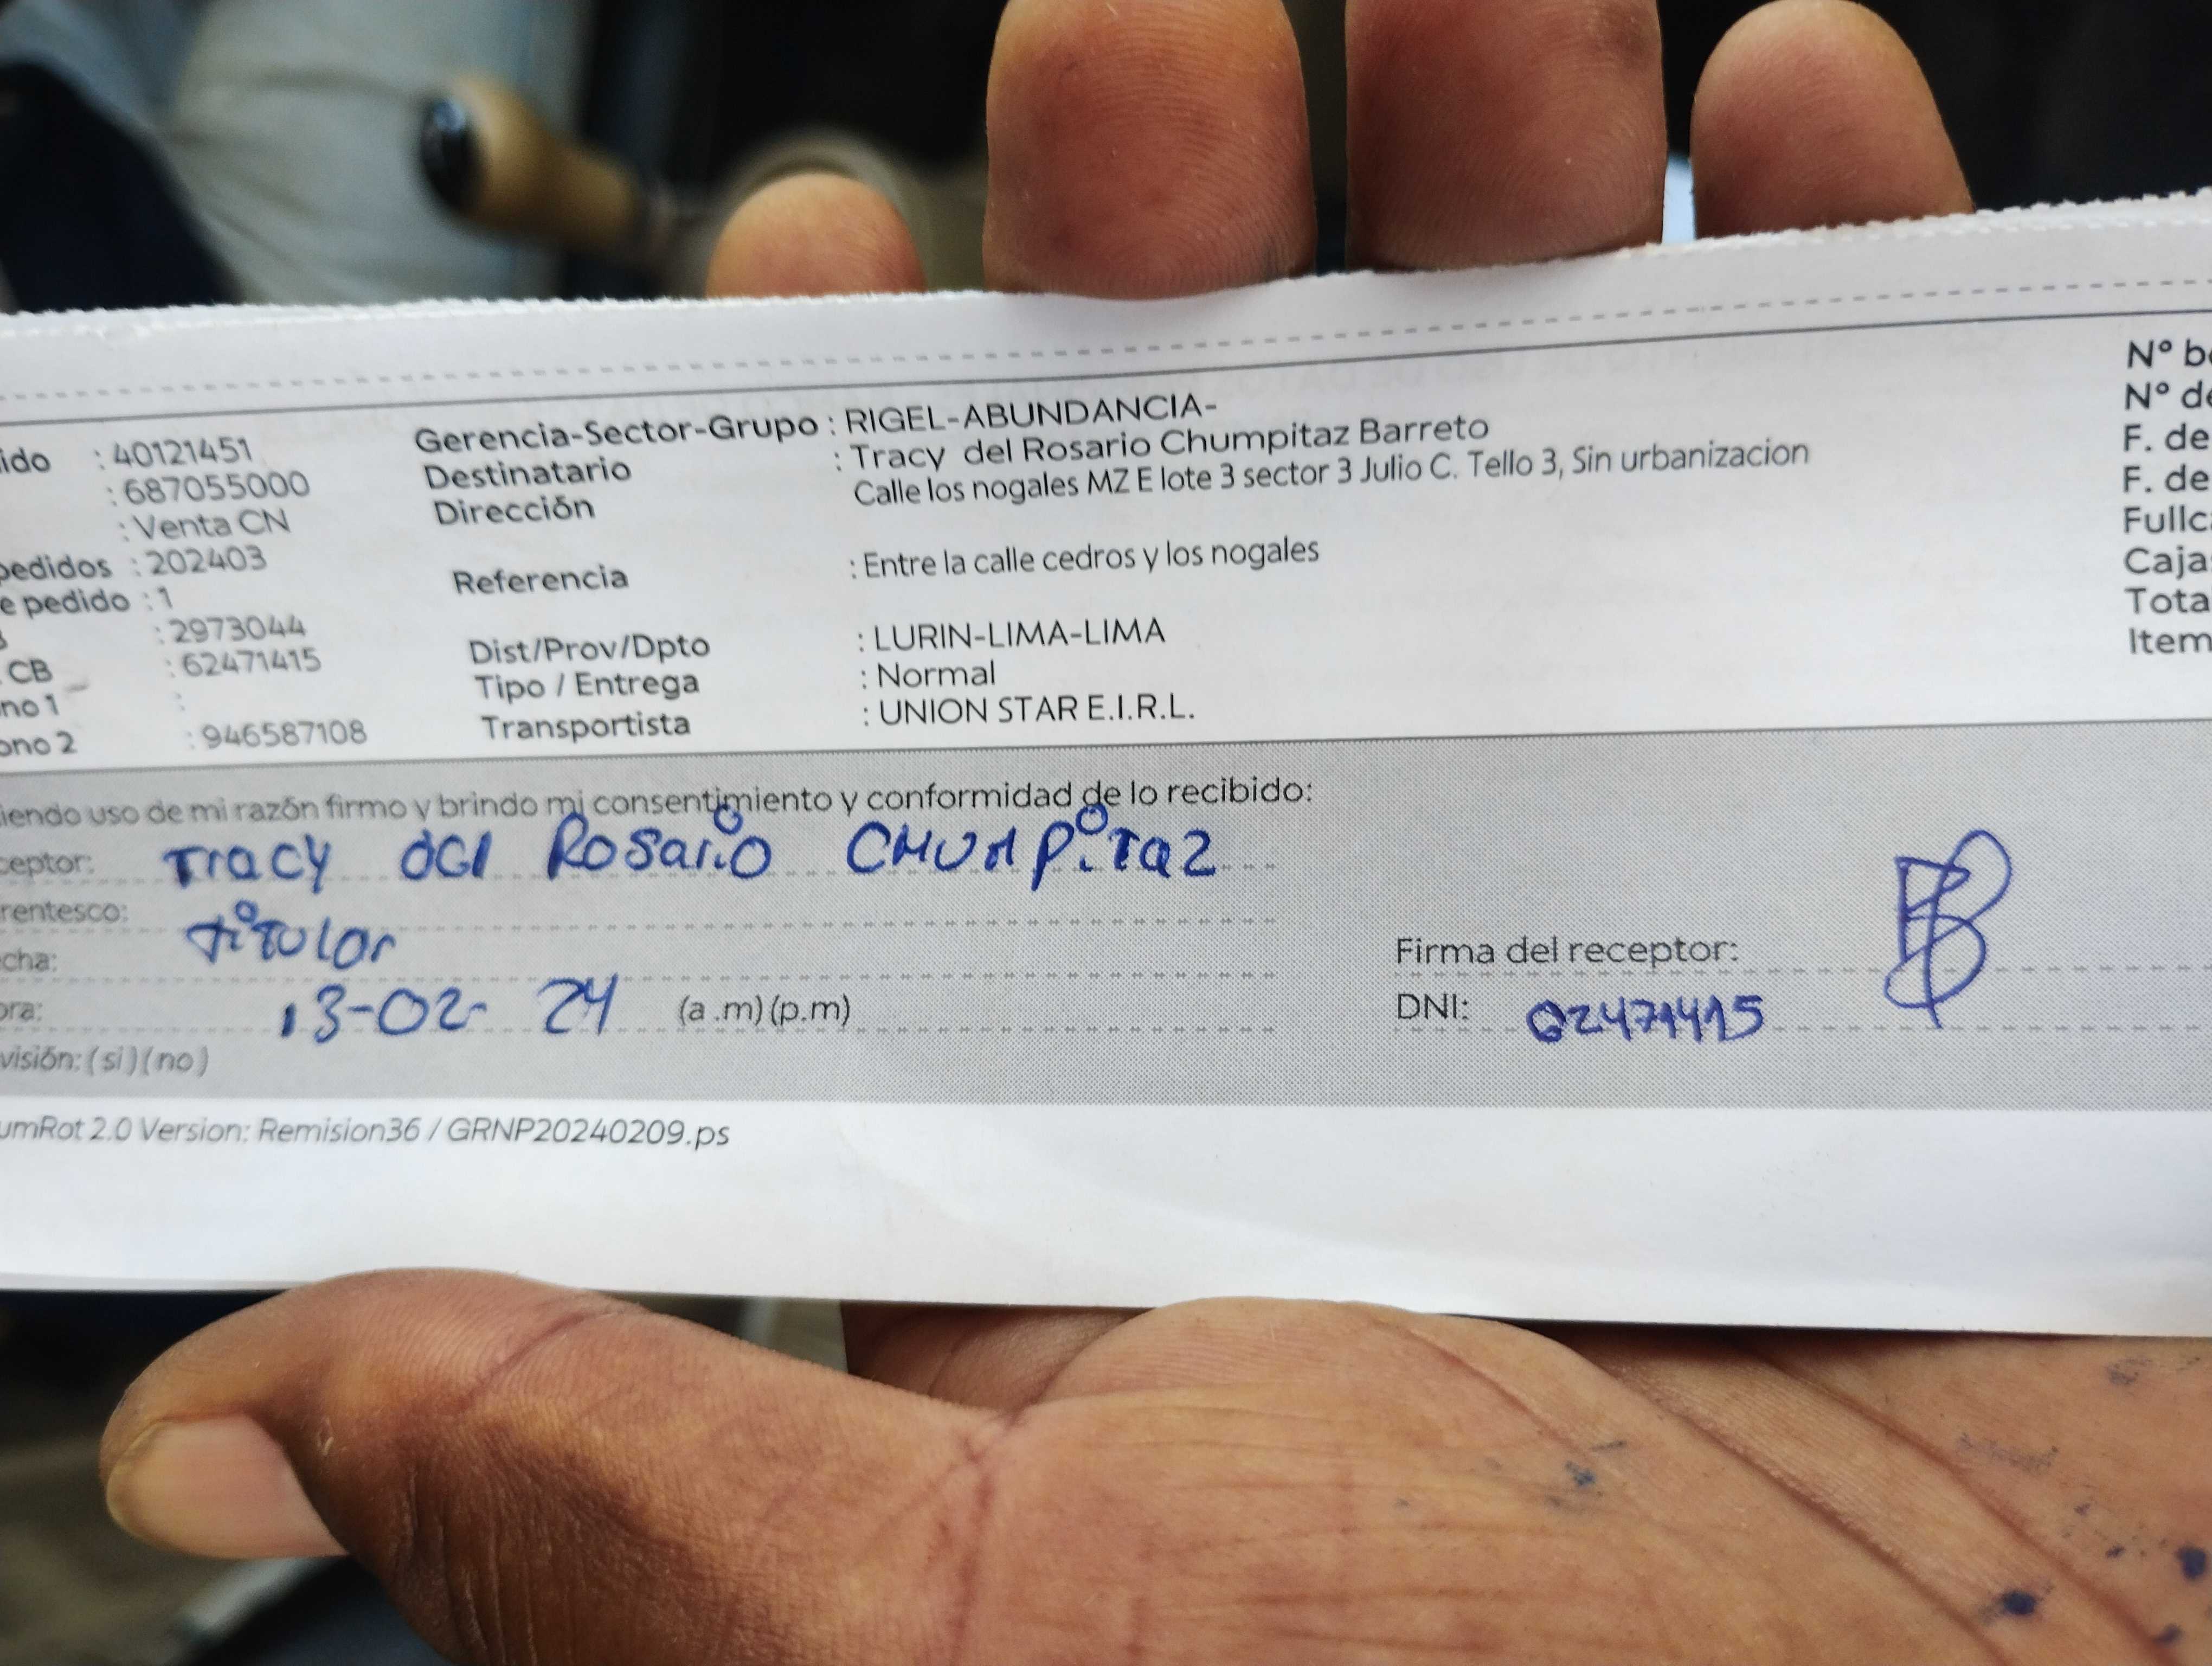 ido : 40121451 Gerencia-Sector-Grupo : RIGEL-ABUNDANCIA- Nº b
: 687055000 Destinatario : Tracy del Rosario Chumpitaz Barreto Nº de
: Venta CN Dirección Calle los nogales MZ E lote 3 sector 3 Julio C. Tello 3, Sin urbanizacion F. de
pedidos : 202403 F. de
e pedido : 1 Referencia : Entre la calle cedros y los nogales Fullc
: 2973044 Dist/Prov/Dpto : LURIN-LIMA-LIMA Caja
CB : 62471415 Tipo / Entrega : Normal Tota
no 1 : Transportista : UNION STAR E.I.R.L. Item
ono 2 : 946587108
iendo uso de mi razón firmo y brindo mi consentimiento y conformidad de lo recibido:
ceptor: Tracy del Rosario CHUMPiTaz
rentesco: titular
cha: Firma del receptor:
ora: 13-02-24 (a .m) (p.m) DNI: 62471415
visión: ( si ) ( no )
umRot 2.0 Version: Remision36 / GRNP20240209.ps